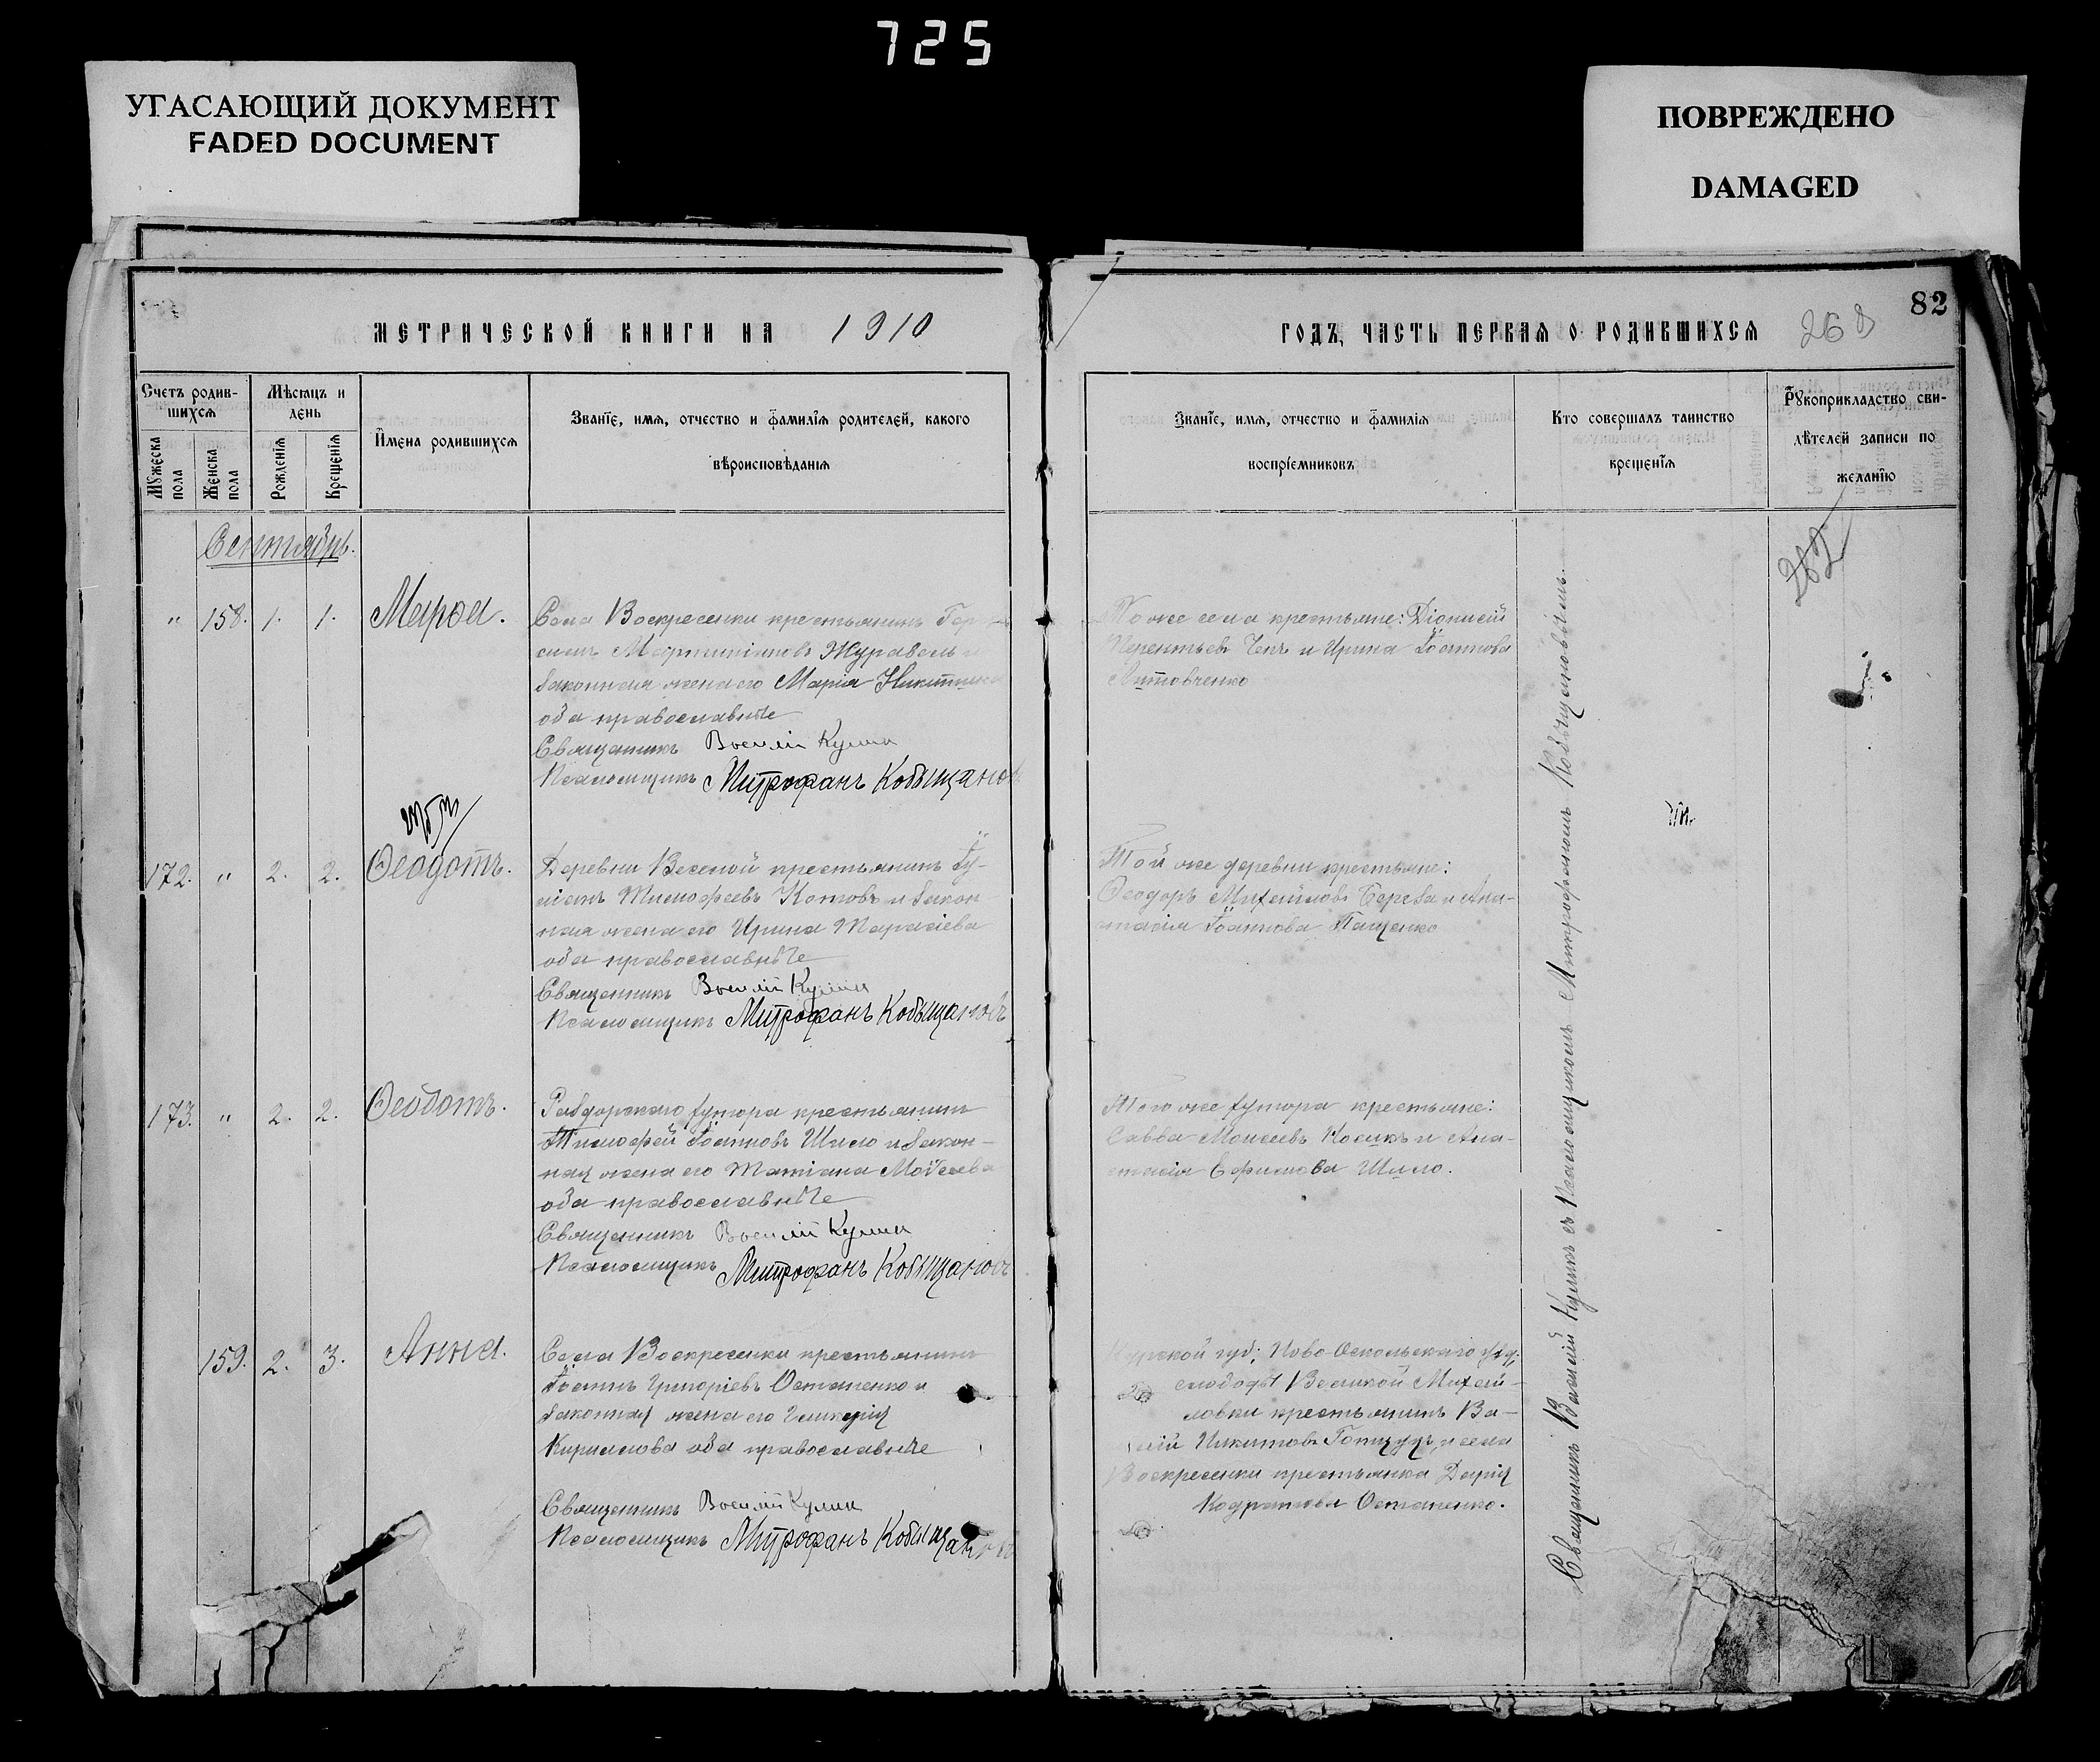 725
УГАСАЮЩИЙ ДОКУМЕНТ
FADED DOCUMENT
ПОВРЕЖДЕНО
DAMAGED
82
МЕТРИЧЕСКОЙ КНИГИ НА 1910
ГОДЪ, ЧАСТЬ ПЕРВАЯ О РОДИВШИХСЯ
268
Счетъ родив-
шихся
Мѣсяцъ и
день
Мужеска
пола
Женска
пола
Рожденія
Крещенія
Имена родившихся
Званіе, имя, отчество и фамилія родителей, какого
вѣроисповѣданія
Званіе, имя, отчество и фамилія
воспріемниковъ
Кто совершалъ таинство
крещенія
Рукоприкладство сви-
дѣтелей записи по
желанію
Сентябрь.
" 158. 1. 1. Марѳа.
Села Воскресенки крестьянинъ
Мартиніановъ Журавель
законная жена его Марія Никитина
оба православные
Священникъ Василій Кулик
Псаломщикъ Митрофанъ Кобыщанов
Того же села крестьяне: Діонисій
Терентьевъ и Ирина Іоаннова
Литовченко
172. " 2. 2. Ѳеодотъ.
Деревни Веселой крестьянинъ Іу-
ліанъ Тимофеевъ Котовъ и закон
ная жена его Ирина Тарасіева
оба православные
Священникъ Василій Кулик
Псаломщикъ Митрофанъ Кобыщановъ
Той же деревни крестьяне:
Ѳеодоръ Михайловъ Береза и Ана-
стасія Іоаннова Пащенко
173. " 2. 2. Ѳеодотъ.
Раздорскаго хутора крестьянинъ
Тимофей Іоанновъ Шило и закон-
ная жена его Татіана Моѵсеева
оба православные
Священникъ Василій Кулик
Псаломщикъ Митрофанъ Кобыщановъ
Того же хутора крестьяне:
Савва Моисеевъ Косикъ и Ана-
стасія Ефимова Шило.
159. 2. 3. Анна.
Села Воскресенки крестьянинъ
Іоаннъ Григоріевъ Остапенко и
законная жена его Гликерія
Кириллова оба православные
Священникъ Василій Кулик
Псаломщикъ Митрофанъ Кобыщановъ
Курской губ; Ново-Оскольскаго уѣз;
слободы Великой Михай-
ловки крестьянинъ Ва-
силій Никитовъ и села
Воскресенки крестьянка Дарія
Кодратова Остапенко.
Священникъ Василій Куликъ съ Псаломщикомъ Митрофаномъ Кобыщановымъ.